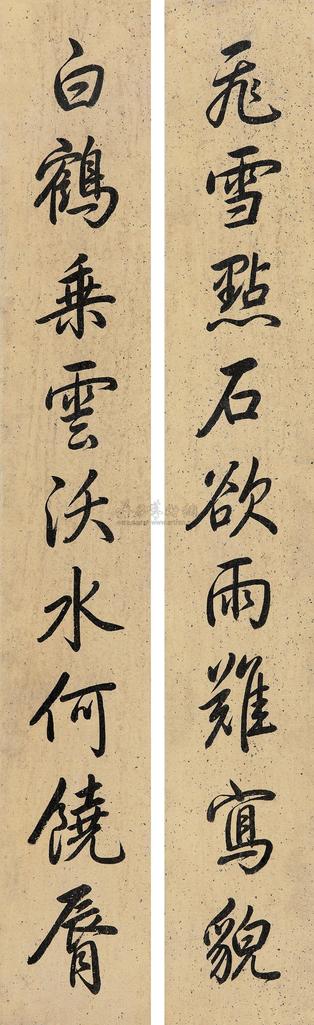 飛雪點石欲雨難寫貌
白鶴乗雲沃水何饒脣